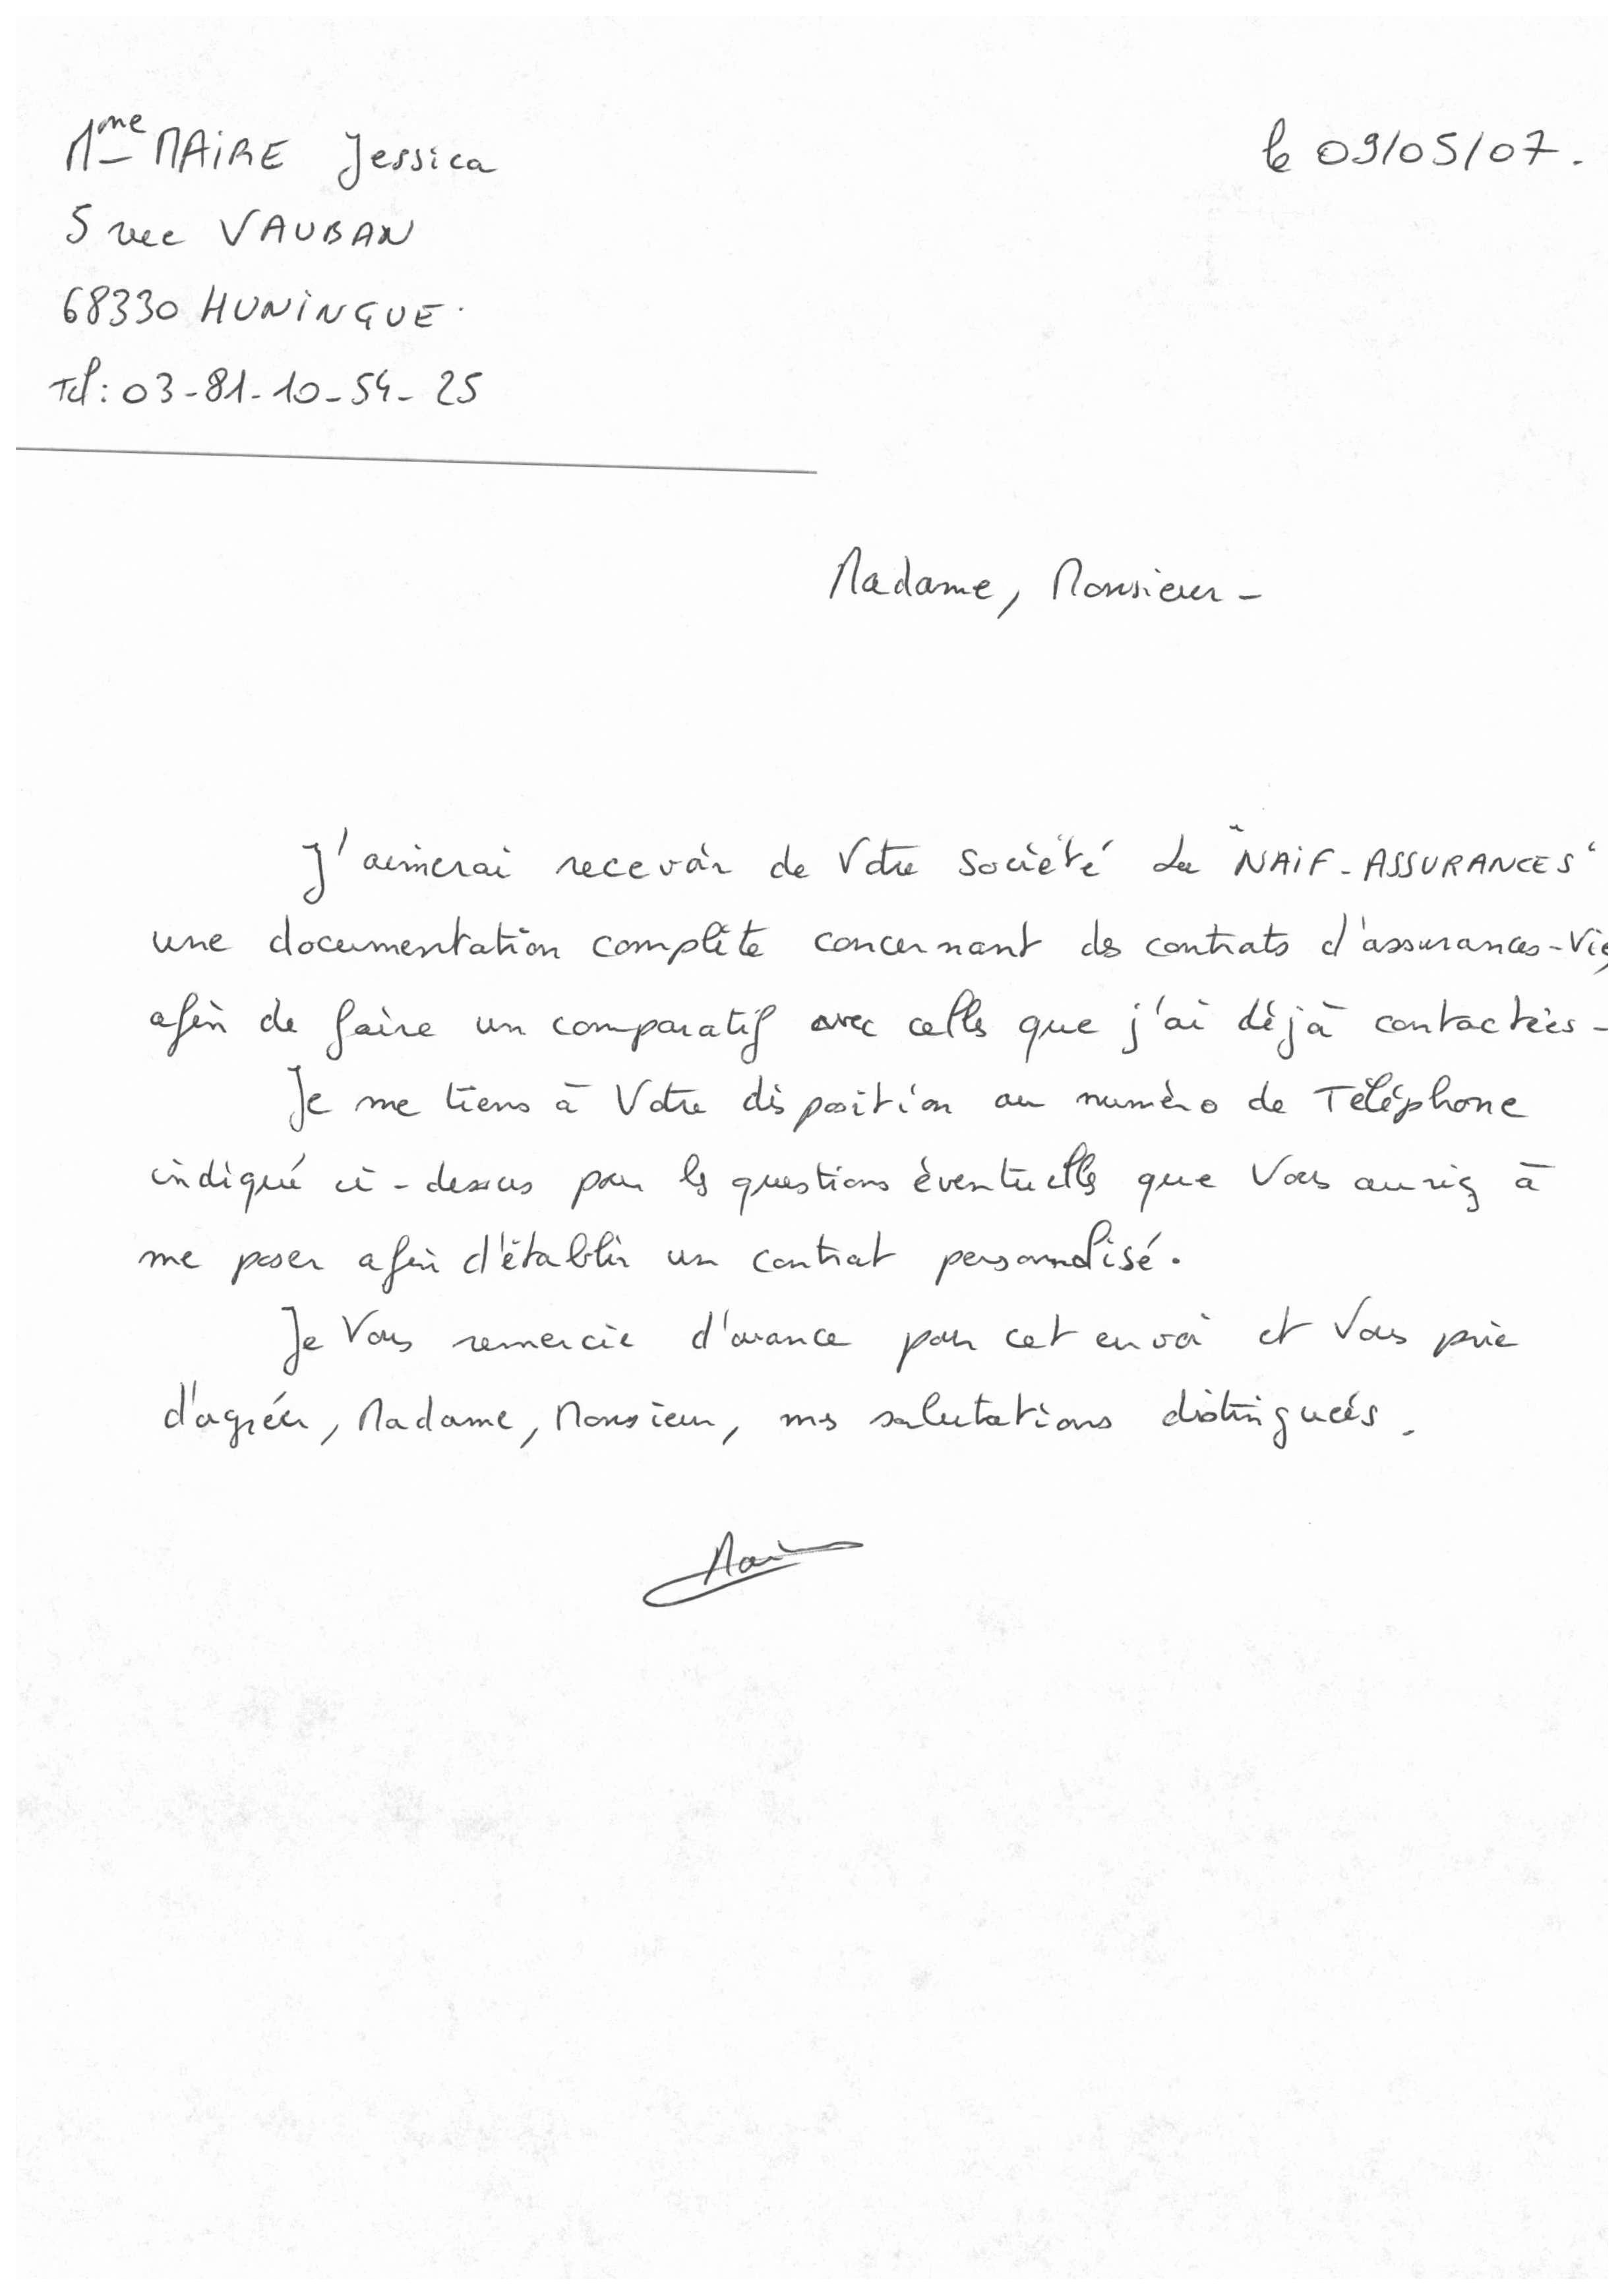 Mme MAIRE Jessica
le 09/05/07.
5 rue VAUBAN
68330 HUNINGUE.
Tel: 03-81-10-54-25
Madame, Monsieur-
J'aimerai recevoir de Votre Société La "NAIF-ASSURANCES"
une documentation complète concernant des contrats d'assurances-Vie,
afin de faire un comparatif avec celles que j'ai déjà contactées-
Je me tiens à Votre disposition au numéro de Téléphone
indiqué ci-dessus pour les questions éventuelles que Vous auriez à
me poser afin d'établir un contrat personnalisé.
Je Vous remercie d'avance pour cet envoi et Vous prie
d'agréer, Madame, Monsieur, mes salutations distinguées.